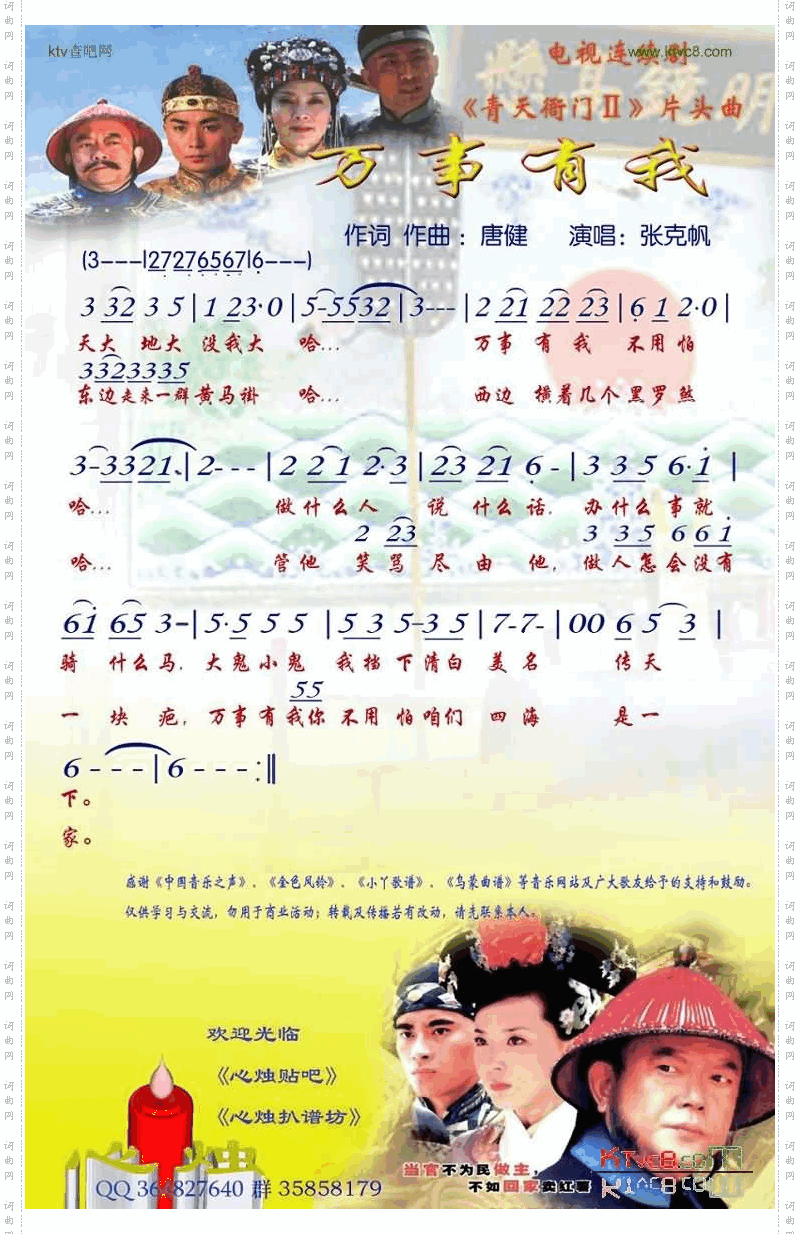 ktv音吧网
www.ktvc8.com
电视连续剧
明镜高悬
《青天衙门II》片头曲
万事有我
作词 作曲：唐健 演唱：张克帆
(3---|27276567|6---)
3 32 3 5|1 23·0|5-5532|3---|2 21 22 23|6 1 2·0|
天大 地大 没我大 哈... 万事 有 我 不 用 怕
33233335
东边走来一群黄马褂 哈... 西边 横着几个黑罗煞
3-3321|2---|2 2 1 2·3|23 21 6-|3 3 5 6·i|
哈... 做什么人 说 什么话. 办什么事就
2 23 3 3 5 6 6 i
哈... 管他 笑骂 尽 由 他, 做人怎会没有
6i 65 3-|5·5 5 5|5 3 5-3 5|7-7-|00 6 5 3|
骑 什么马. 大鬼小鬼 我挡下清白 美名 传天
55
一 块 疤, 万事有我你不用 怕咱们 四海 是一
6---|6---:||
下。
家。
感谢《中国音乐之声》、《金色风铃》、《小丫歌谱》、《乌蒙曲谱》等音乐网站及广大歌友给予的支持和鼓励。
仅供学习与交流，勿用于商业活动；转载及传播若有改动，请先联系本人。
欢迎光临
《心烛贴吧》
《心烛扒谱坊》
当官不为民做主，
不如回家卖红薯
KTvc8.com
KTvc8.com
群 35858179
词曲网